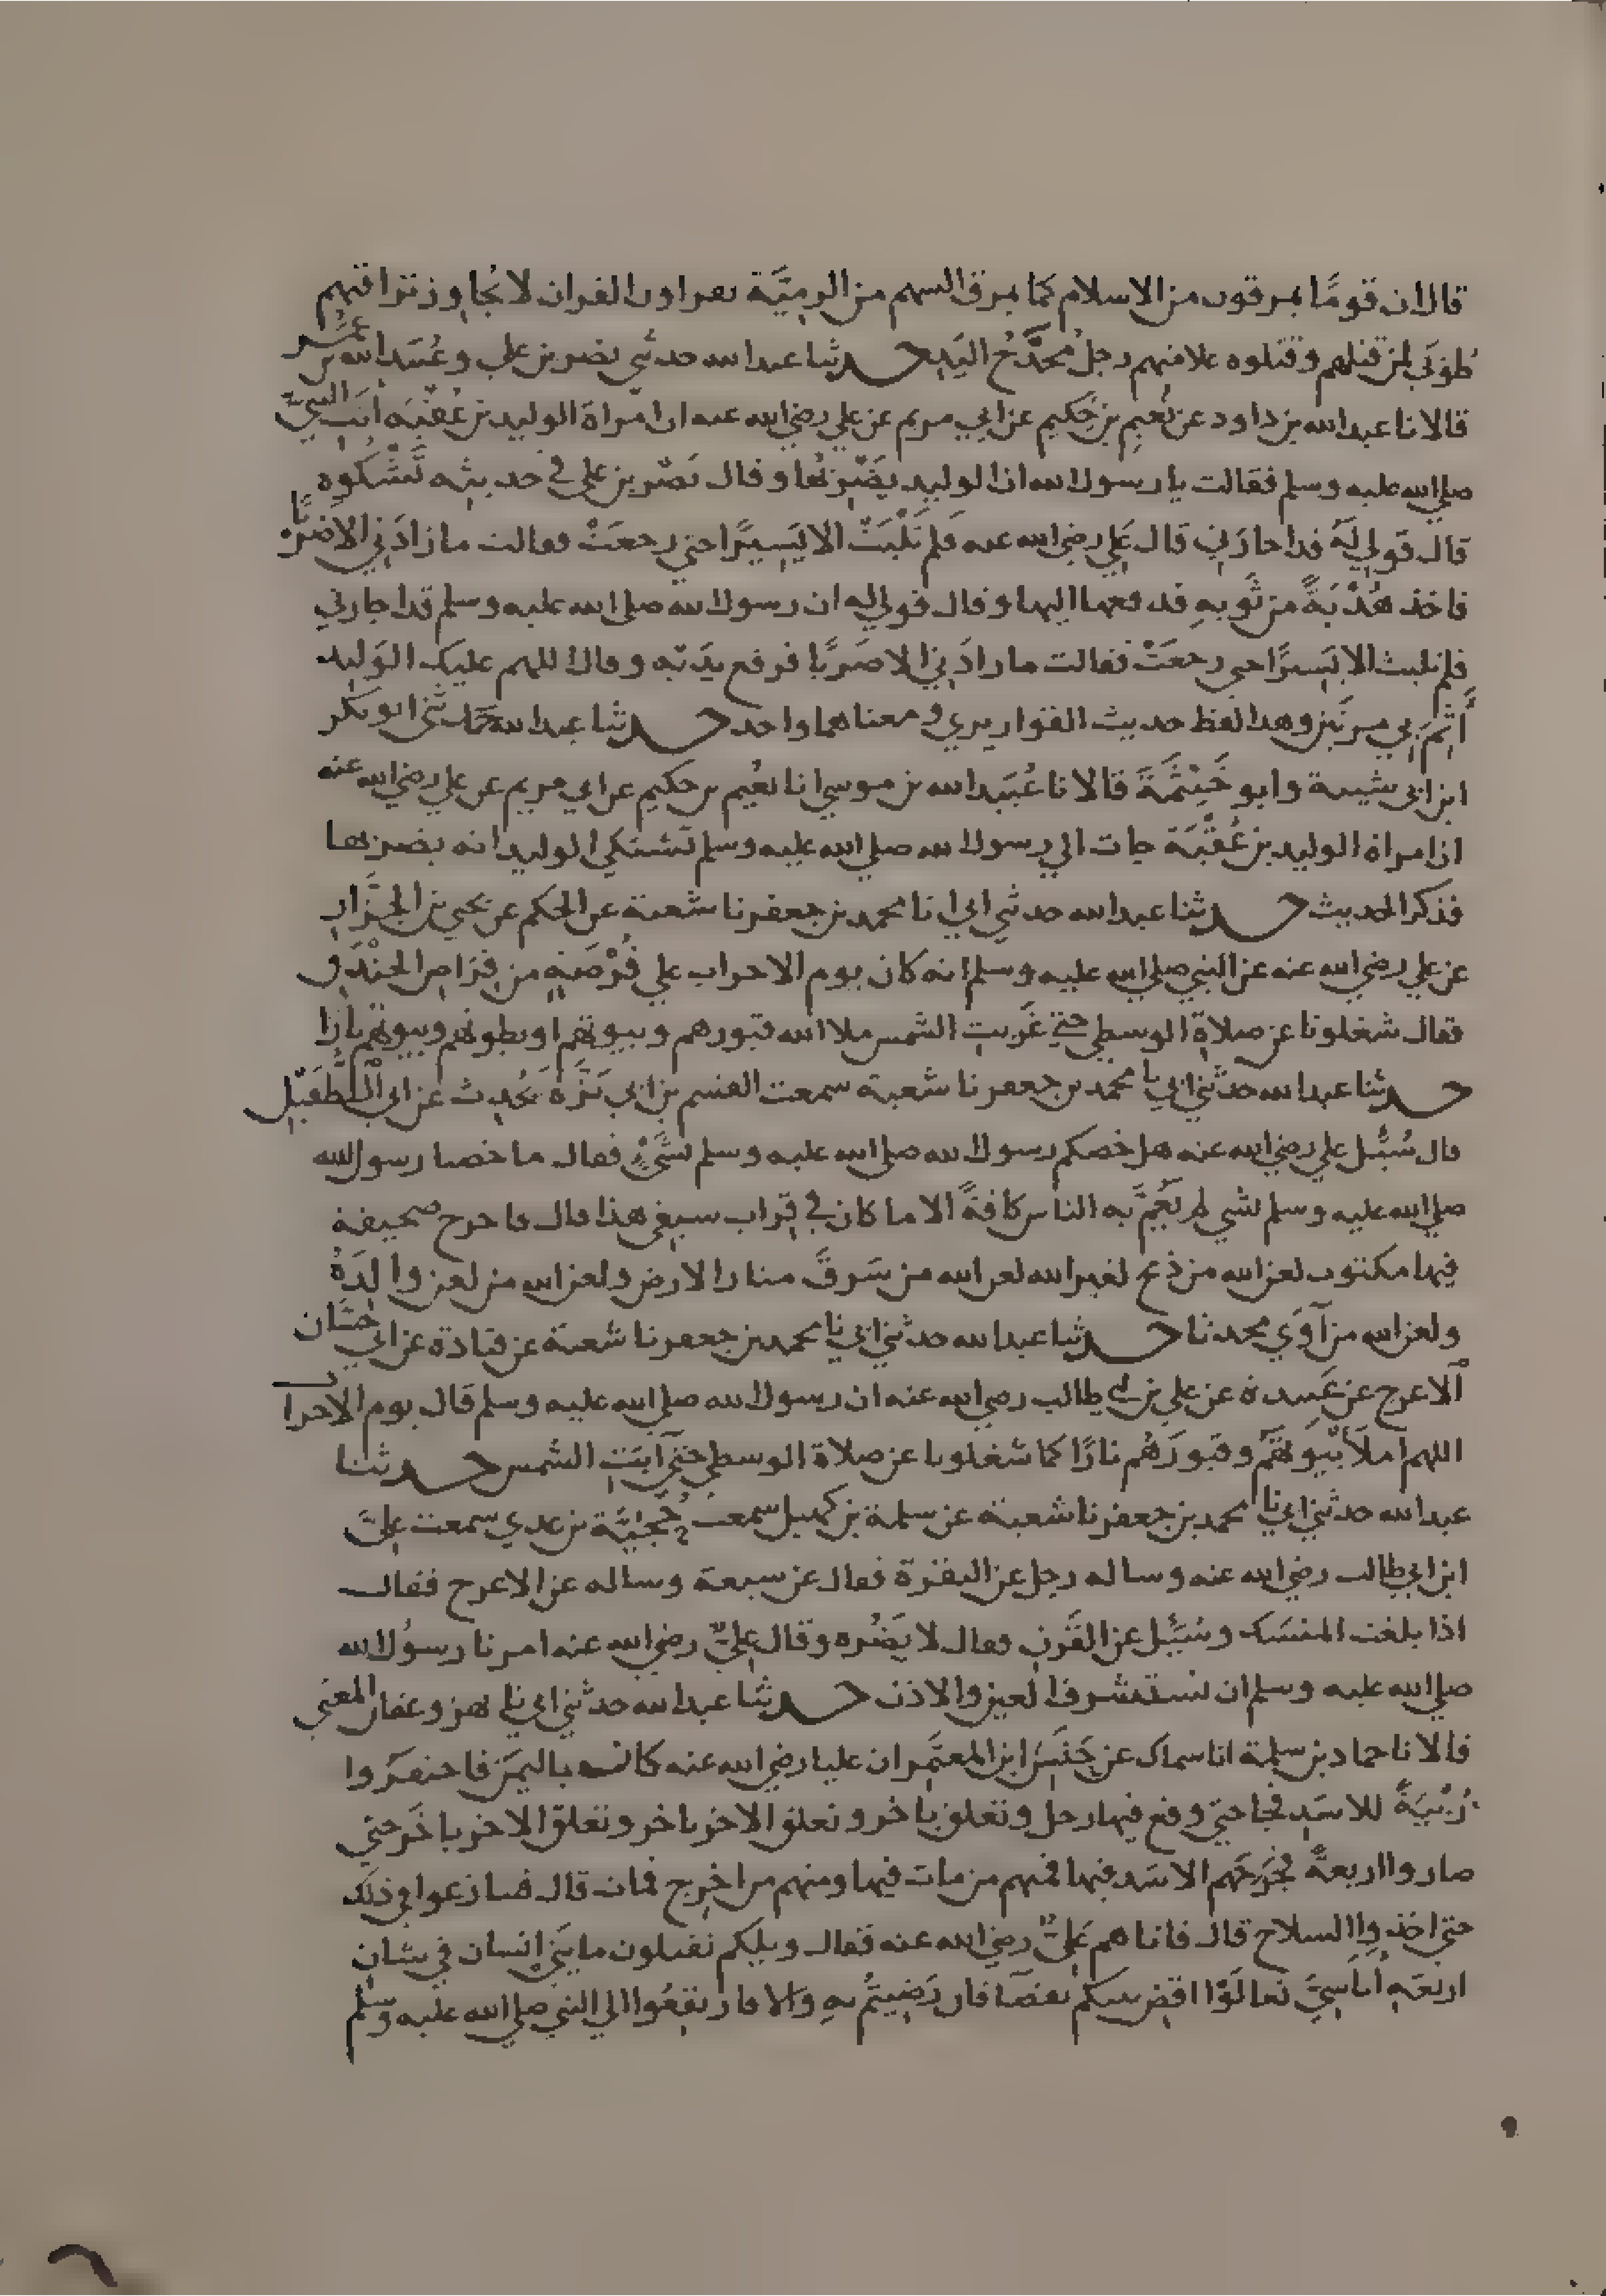 قال ان قومًا يمرقون من الاسلام كما يمرق السهم من الرميّة يقراون القران لا يُجاوز تراقيهم
طُوبَي لمن قتلهم وقتلوه علامتهم رجلٌ مخدَّجُ اليَدِ حدثنا عبد الله حدثني نصر بن علي وعُبَيد الله بن عُمَر
قالا نا عبد الله بن داود عن نُعيم بن حَكيم عن ابي مريم عن علي رضي الله عنه ان امراة الوليد بن عُقْبَة اتت النبيّ
صلي الله عليه وسلم فقالت يا رسول الله ان الوليد يَضْرِبُها وقال نَصْر بن علي في حديثه تَشْكوه
قال قولي لَهُ قد اجارني قال عَلي رضي الله عنه فلم تَلْبَثْ الا يَسِيرًا حتي رجعَتْ فقالت ما زادَني الا ضربًا
فاخذ هُدْبَةً من ثَوبهِ فدفعها اليها وقال قولي له ان رسول الله صلي الله عليه وسلم قد اجارني
فلم تلبث الا يَسيرًا حتي رجعَتْ فقالت ما زادَني الا ضربًا فرفع يدَيْه وقال اللهم عليك الوَليد
أَثِمَ بي مرتَين وهذا لفظ حديث القواريري ومعناهما واحد حدثنا عبد الله حدثني ابو بكر
ابن ابي شيبة وابو خَيْثَمَةَ قالا نا عُبَيد الله بن موسي انا نُعيم بن حكيم عن ابي مريم عن علي رضي الله عنه
ان امراة الوليد بن عُقْبَة جات الي رسول الله صلي الله عليه وسلم تَشتكي الوليد انه يضربها
فذكر الحديث حدثنا عبد الله حدثني ابي نا محمد بن جعفر نا شعبة عن الحكم عن يحيي بن الجَزَّار
عن علي رضي الله عنه عن النبي صلي الله عليه وسلم انه كان يوم الاحزاب علي فُرْضَةٍ من فِرَاضِ الخَنْدَق
فقال شغلونا عن صلاةِ الوسطي حتي غَرَبتِ الشمس ملا الله قبورهم وبيوتهم او بطونهم وبيوتهم نارًا
حدثنا عبد الله حدثني ابي نا محمد بن جعفر نا شعبة سمعت القسم بن ابي بَزَّةَ يُحَدِث عن ابي الطُّفَيْل
قال سُئِل علي رضي الله عنه هل خصكم رسول الله صلي الله عليه وسلم بشَيْءٍ فقال ما خصنا رسول الله
صلي الله عليه وسلم بشي لم يَعُمَّ به الناس كافةً الا ما كان في قِراب سيفي هذا قال فاخرج صحيفة
فيها مكتوب لعن الله من ذبح لغير الله لعن الله من سَرقَ منار الارض ولعن الله من لعن والِدَهُ
ولعن الله من آوَي محدثا حدثنا عبد الله حدثني ابي نا محمد بن جعفر نا شعبة عن قتادة عن ابي حسَّان
الاعرج عن عَبيدة عن علي بن ابي طالب رضي الله عنه ان رسول الله صلي الله عليه وسلم قال يوم الاحزاب
اللهم املأ بُيُوتَهُم وقبورَهُم نارًا كما شغلونا عن صلاة الوسطي حتي آبَتِ الشمس حدثنا
عبد الله حدثني ابي نا محمد بن جعفر نا شعبة عن سلمة بن كهيل سمعت حُجَيَّة بن عدي سمعت عليَّ
ابن ابي طالب رضي الله عنه وساله رجل عن البقرة فقال عن سبعة وساله عن الاعرج فقال
اذا بلغت المنسَك وسُئِل عن القَرنِ فقال لا يَضُره وقال عليٌّ رضي الله عنه امرنا رسولُ الله
صلي الله عليه وسلم ان نستشرف العين والاذن حدثنا عبد الله حدثني ابي نا بهز وعفان المعني
قالا نا حماد بن سلمة انا سماك عن حَنَشِ ابن المعتَمِر ان عليا رضي الله عنه كان باليمَن فاحتفرُوا
زُبْيَةً للاسَدِ فجا حتي وقع فيها رجل وتعلق باخر وتعلق الاخر باخر وتعلق الاخر باخَر حتي
صاروا اربعةً فجَرَحَهم الاسَد فيها فمنهم من مات فيها ومنهم من اخرِج فمات قال فتنازعوا في ذلك
حتي اخذوا السلاح قال فاتاهم عَليٌّ رضي الله عنه فقال ويلكم تقتلون مايتَيْ انسان في شانِ
اربعةِ اناسِيَّ تعالَوْا اقضِ بينكم بقضاءٍ فان رَضِيتُم بهِ والا فارتفِعُوا الي النبي صلي الله عليه وسلم